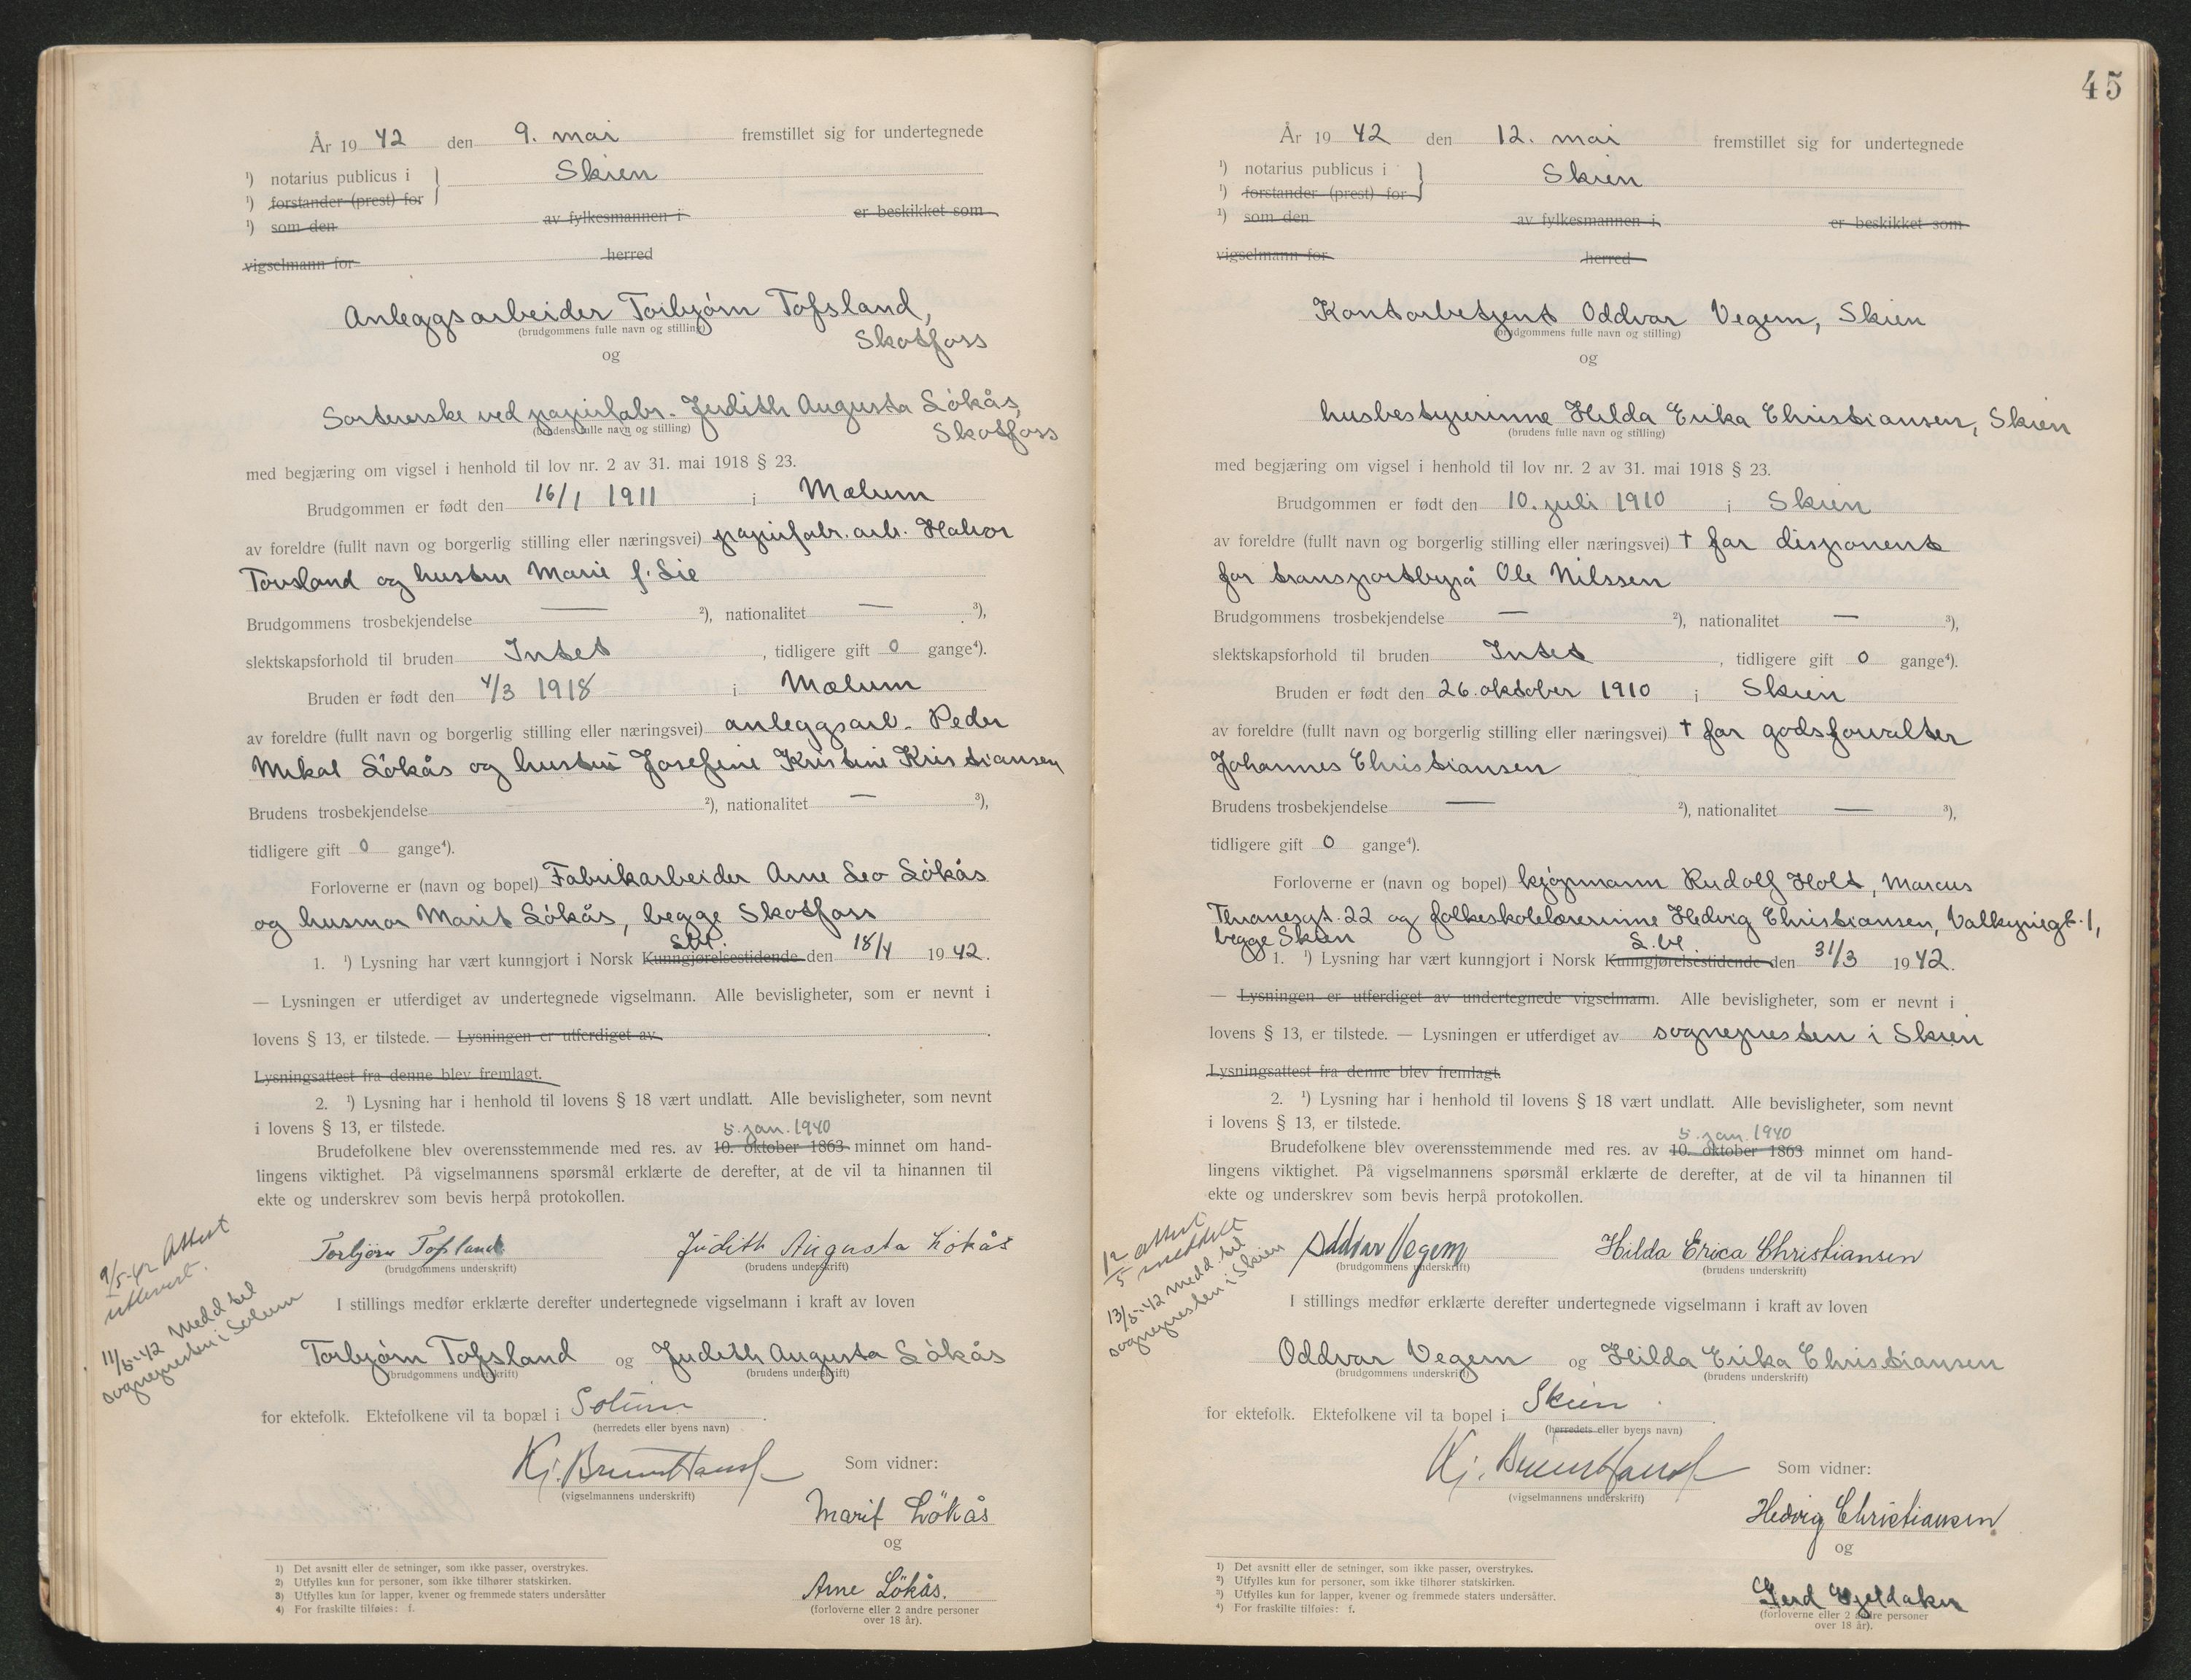 År 19 42 den 9. mai fremstillet sig for undertegnede
¹) notarius publicus i } Skien
¹) forstander (prest) for
¹) som den av fylkesmannen i er beskikket som
vigselmann for herred
Anleggsarbeider Torbjørn Tofsland,
(brudgommens fulle navn og stilling)
Skotfoss
og
Sortererske ved papirfabr. Judith Augusta Løkås,
(brudens fulle navn og stilling)
Skotfoss
med begjæring om vigsel i henhold til lov nr. 2 av 31. mai 1918 § 23.
Brudgommen er født den 16/1 1911 i Mælum
av foreldre (fullt navn og borgerlig stilling eller næringsvei) papirfabr. arb. Halvor
Tovsland og hustru Marie f. Lie
Brudgommens trosbekjendelse — ²), nationalitet — ³),
slektskapsforhold til bruden Intet , tidligere gift 0 gange⁴).
Bruden er født den 4/3 1918 i Mælum
av foreldre (fullt navn og borgerlig stilling eller næringsvei) anleggsarb. Peder
Mikal Løkås og hustru Josefine Kristine Kristiansen
Brudens trosbekjendelse ²), nationalitet — ³),
tidligere gift 0 gange⁴).
Forloverne er (navn og bopel) Fabrikarbeider Arne Leo Løkås
og husmor Marit Løkås, begge Skotfoss
1. ¹) Lysning har vært kunngjort i Norsk Kunngjørelsestidende den 18/4 19 42.
— Lysningen er utferdiget av undertegnede vigselmann. Alle bevisligheter, som er nevnt i
lovens § 13, er tilstede. — Lysningen er utferdiget av
Lysningsattest fra denne blev fremlagt.
2. ¹) Lysning har i henhold til lovens § 18 vært undlatt. Alle bevisligheter, som nevnt
i lovens § 13, er tilstede.
5. jan. 1940
Brudefolkene blev overensstemmende med res. av 10. oktober 1863 minnet om hand-
lingens viktighet. På vigselmannens spørsmål erklærte de derefter, at de vil ta hinannen til
ekte og underskrev som bevis herpå protokollen.
9/5-42 Attest
utlevert.
11/5-42 Medd til
sognepresten i Solum
Torbjørn Tofsland Judith Augusta Løkås
(brudgommens underskrift) (brudens underskrift)
I stillings medfør erklærte derefter undertegnede vigselmann i kraft av loven
Torbjørn Tofsland og Judith Augusta Løkås
(brudgommens underskrift) (brudens underskrift)
for ektefolk. Ektefolkene vil ta bopæl i Solum.
(herredets eller byens navn)
Kj. Bruun Hanssen Som vidner:
(vigselmannens underskrift)
Marit Løkås
og
Arne Løkås.
(forloverne eller 2 andre personer
over 18 år).
1) Det avsnitt eller de setninger, som ikke passer, overstrykes.
2) Utfylles kun for personer, som ikke tilhører statskirken.
3) Utfylles kun for lapper, kvener og fremmede staters undersåtter
4) For fraskilte tilføies: f.
45
År 19 42 den 12. mai fremstillet sig for undertegnede
¹) notarius publicus i } Skien
¹) forstander (prest) for
¹) som den av fylkesmannen i er beskikket som
vigselmann for herred
Kontorbetjent Oddvar Vegem, Skien
(brudgommens fulle navn og stilling)
og
husbestyrerinne Hilda Erika Christiansen, Skien
(brudens fulle navn og stilling)
med begjæring om vigsel i henhold til lov nr. 2 av 31. mai 1918 § 23.
Brudgommen er født den 10. juli 1910 i Skien
av foreldre (fullt navn og borgerlig stilling eller næringsvei) † far disponent
for transportbyrå Ole Nilssen
Brudgommens trosbekjendelse — ²), nationalitet — ³),
slektskapsforhold til bruden Intet , tidligere gift 0 gange⁴).
Bruden er født den 26. oktober 1910 i Skien
av foreldre (fullt navn og borgerlig stilling eller næringsvei) † far godsforvalter
Johannes Christiansen
Brudens trosbekjendelse — ²), nationalitet — ³),
tidligere gift 0 gange⁴).
Forloverne er (navn og bopel) kjøpmann Rudolf Holt, Marcus
Thranesgt. 22 og folkeskolelærerinne Hedvig Christiansen, Valkyriegt. 1,
begge Skien
1. ¹) Lysning har vært kunngjort i Norsk Kunngjørelsestidende den 31/3 19 42.
— Lysningen er utferdiget av undertegnede vigselmann. Alle bevisligheter, som er nevnt i
lovens § 13, er tilstede. — Lysningen er utferdiget av sognepresten i Skien
Lysningsattest fra denne blev fremlagt.
2. ¹) Lysning har i henhold til lovens § 18 vært undlatt. Alle bevisligheter, som nevnt
i lovens § 13, er tilstede.
5. jan. 1940
Brudefolkene blev overensstemmende med res. av 10. oktober 1863 minnet om hand-
lingens viktighet. På vigselmannens spørsmål erklærte de derefter, at de vil ta hinannen til
ekte og underskrev som bevis herpå protokollen.
12/5 attest
meddelt
13/5-42 medd. til
sognepresten i Skien
Oddvar Vegem Hilda Erica Christiansen
(brudgommens underskrift) (brudens underskrift)
I stillings medfør erklærte derefter undertegnede vigselmann i kraft av loven
Oddvar Vegem og Hilda Erika Christiansen
(brudgommens underskrift) (brudens underskrift)
for ektefolk. Ektefolkene vil ta bopel i Skien.
(herredets eller byens navn)
Kj. Bruun Hanssen Som vidner:
(vigselmannens underskrift)
Hedvig Christiansen
og
Gerd
(forloverne eller 2 andre personer
over 18 år).
1) Det avsnitt eller de setninger, som ikke passer, overstrykes.
2) Utfylles kun for personer, som ikke tilhører statskirken.
3) Utfylles kun for lapper, kvener og fremmede staters undersåtter.
4) For fraskilte tilføies: f.